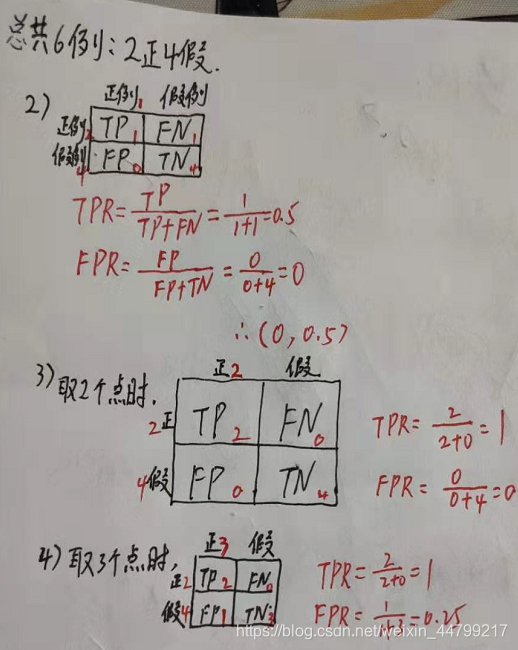 总共6例:2正4假.
2)
正例1 假例
正例2 TP1 FN1
假例4 FP0 TN4
TPR=TP/TP+FN=1/1+1=0.5
FPR=FP/FP+TN=0/0+4=0
∴(0,0.5)
3)取2个点时.
正2 假
2正 TP2 FN0
4假 FP0 TN4
TPR=2/2+0=1
FPR=0/0+4=0
4)取3个点时,
正3 假
正2 TP2 FN0
假4 FP1 TN3
TPR=2/2+0=1
FPR=1/1+3=0.25
https://blog.csdn.net/weixin_44799217